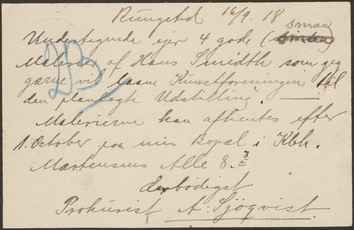 Rungsted 16/9 18
Undertegnede ejer 4 gode (smaa
Malerier af Hans Smidth som jeg
gærne vil laane Kunstforeningen til
den planlagte Udstilling.
Malerierne kan afhentes efter
1. October paa min Bopæl i Kbh.
Martensens Alle 8.
Ærbødigst
Prokurist A. Sjöqvist